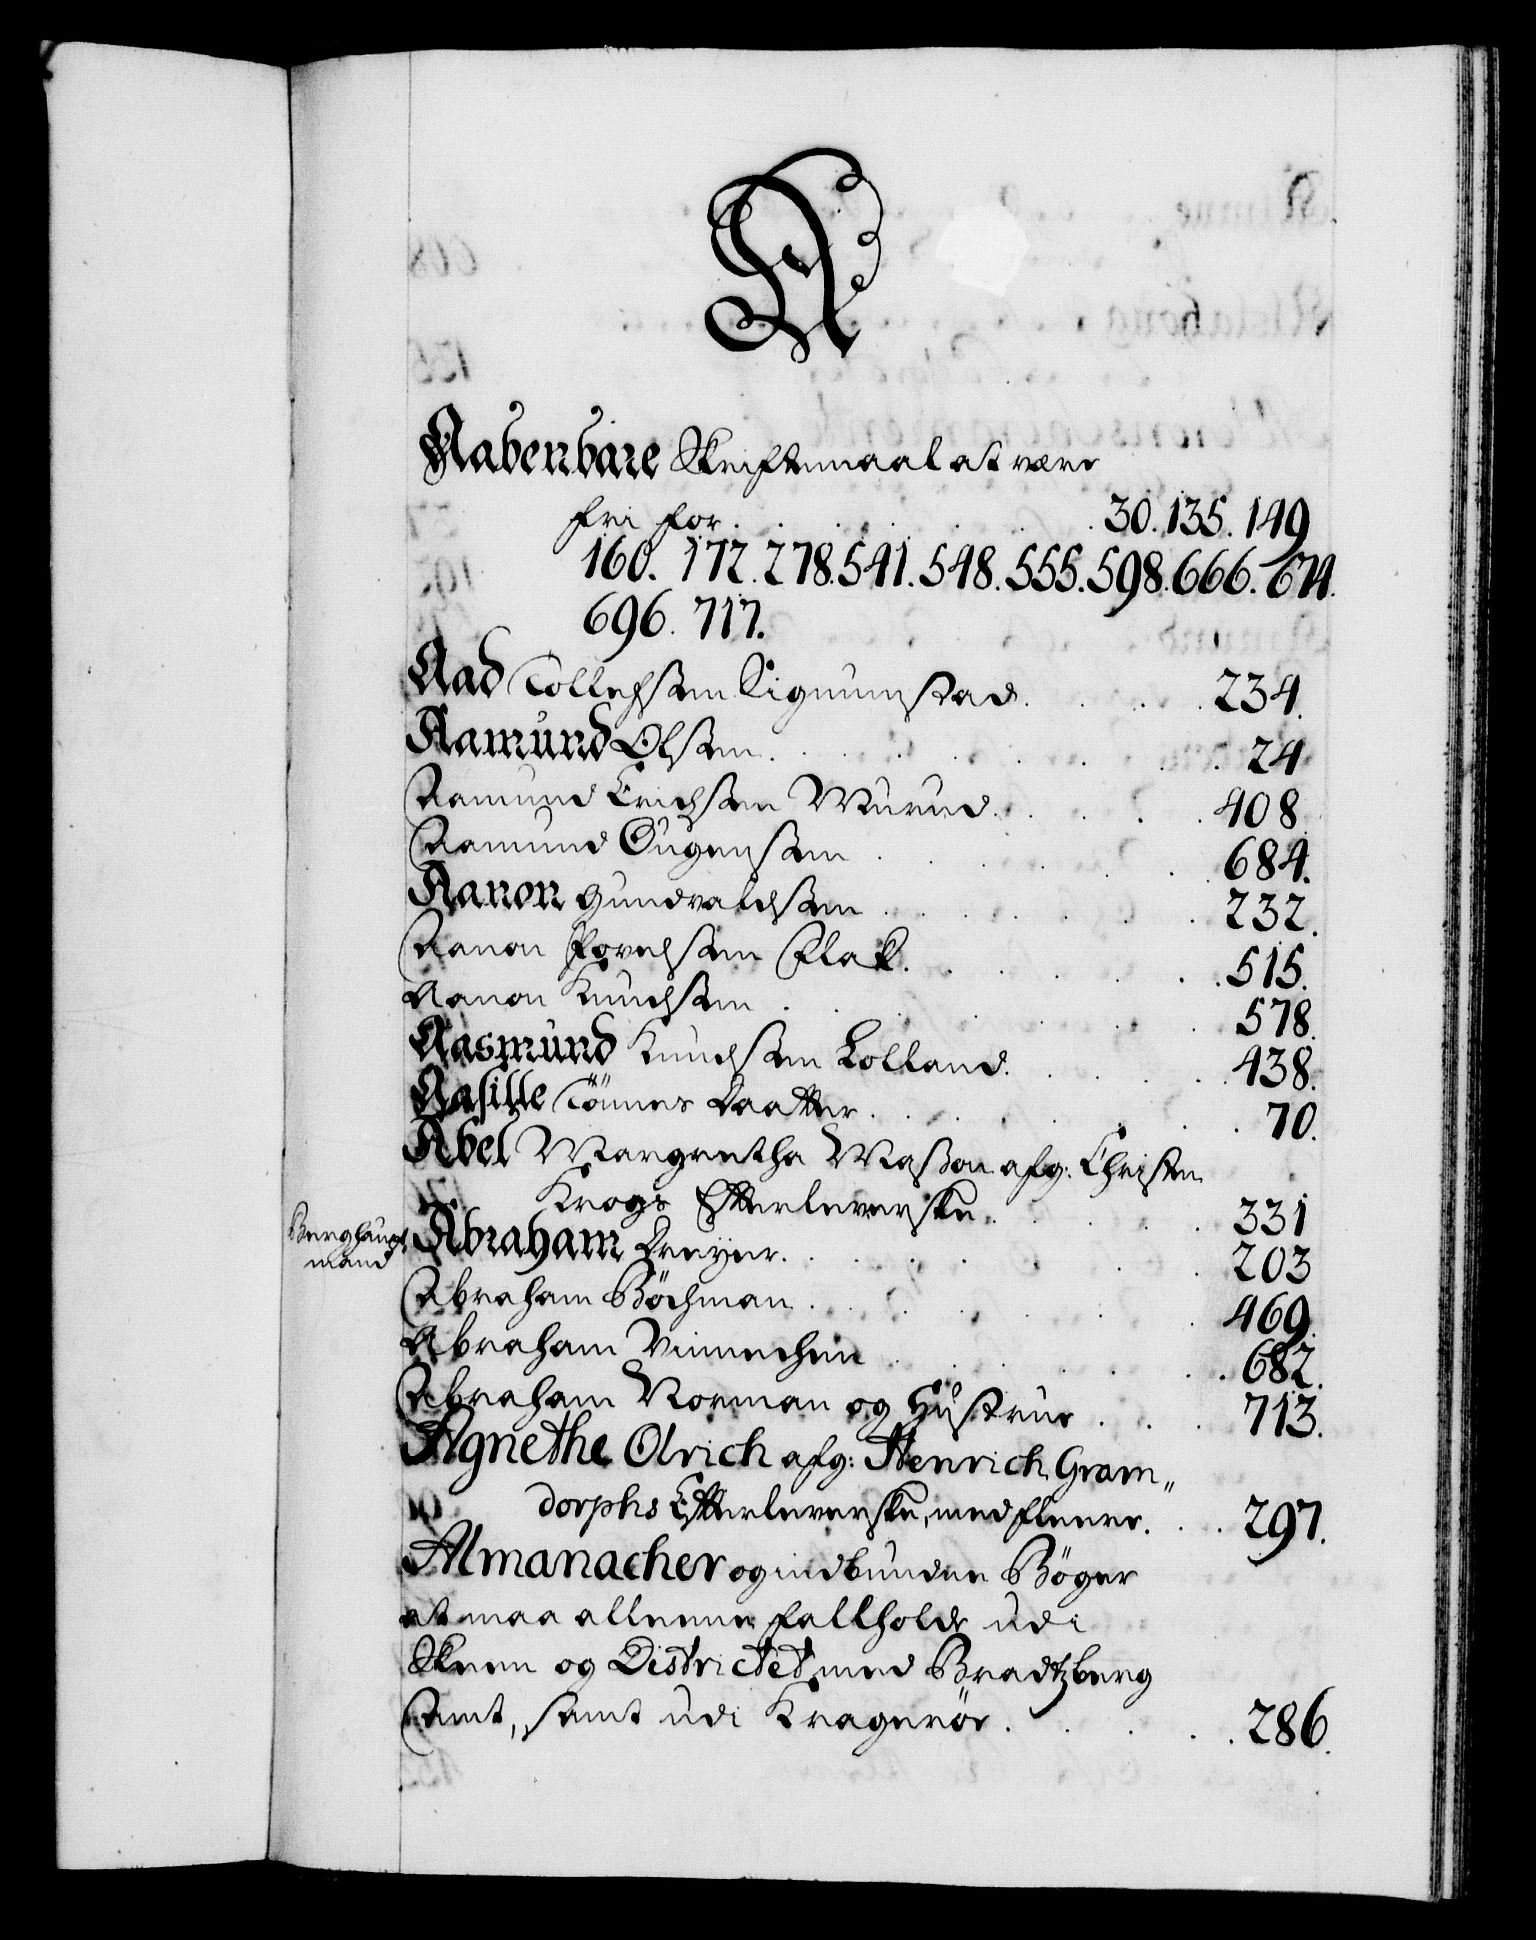 A
Aabenbare Skriftemaal at være
fri for . . . . . . 30. 135. 149
160. 172. 278. 541. 548. 555. 598. 666. 674.
696. 717.
Aad Tollefsen Sigmumstad. . . . 234.
Aamund Olsen. . . . . . . 24
Aamund Erichsen Murud. . . . 408
Aamund Augensen . . . . . 684.
Aanon Gundvaldsen . . . . . 232.
Aanon Povelsen Flak. . . . . 515.
Aanon Knudsen . . . . . 578.
Aasmund Knudsen Lolland. . . . 438.
Aasille Tönnes Daatter. . . . . 70.
Abel Margretha Masson afg: Christen
Krogs Efterleverske. . . . . 331
Berghaupt
mand
Abraham Dreyer. . . . . 203
Abraham Böchman . . . . . 469.
Abraham Vinnechen . . . . 682.
Abraham Norman og Hustrue . . . 713.
Agnethe Olrich afg: Henrich Gram„
dorphs Efterleverske, med fleere. . . 297.
Almanacher og indbundne Böger
at maa alleene fallholde udi
Skeen og Districtet med Bradtzberg
Amt, samt udi Krageröe . . . . 286.